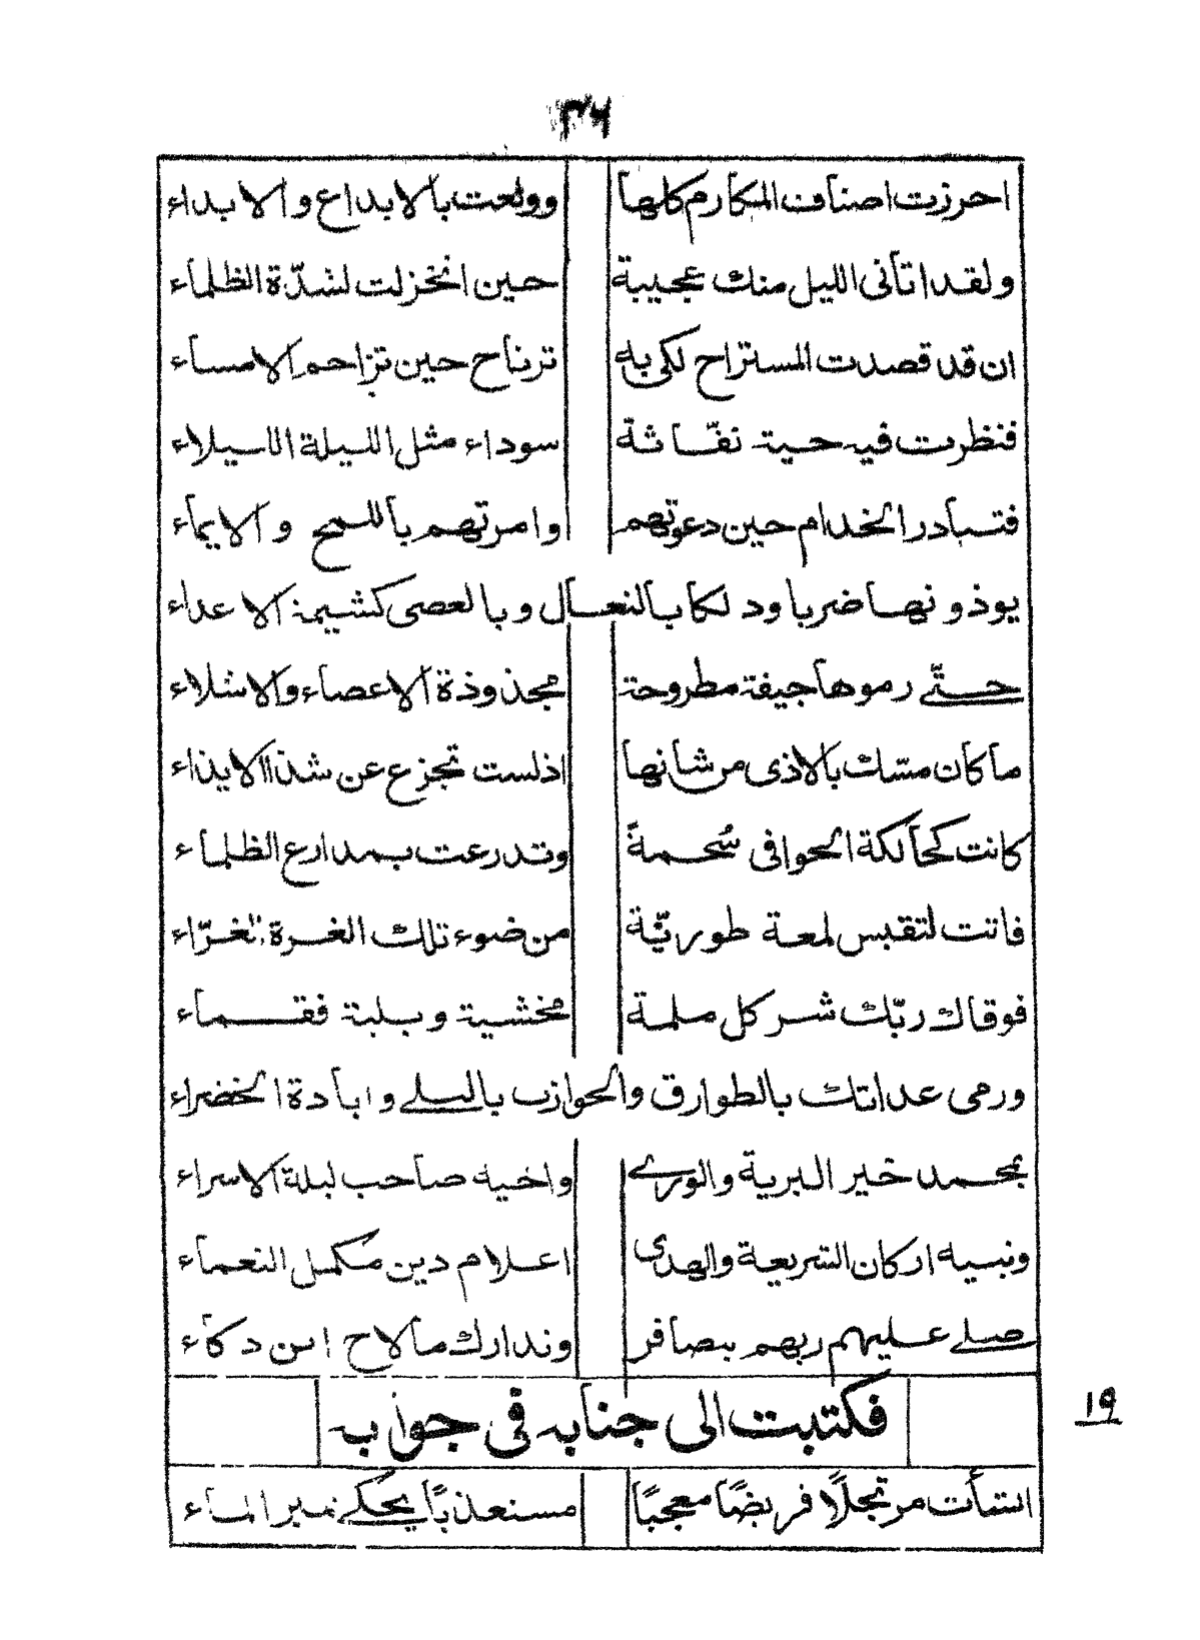 احرزت اصناف المكارم كلها وولعت بالابداع والابداء
ولقد اتأنى الليل منك عجيبة حين انخزلت لشدّة الظلماء
ان قد قصدت المستراح لكى به ترناح حين تزاحم الامساء
فنظرت فيه حية نفّاثة سوداء مثل الليلة الليلاء
فتبادر الخدام حين دعوتهم وامرتهم باللمح والايماء
يوذونها ضربا ودلكا بالنعال وبالعصى كشيمة الاعداء
حتّے رموها جيفة مطروحة مجذوذة الاعضاء والاشلاء
ما كان مسّك بالاذى من شانها اذ لست تجزع عن شذا الايذاء
كانت كحالكة الحوافى سُحمةً وتدرعت بمدارع الظلماء
فاتت لتقبس لمعة طوريّة من ضوء تلك الغرة الغرّاء
فوقاك ربّك شر كل ملمة مخشية وبلية فقماء
ورمى عداتك بالطوارق والحوازب بالبلے وابادة الخضراء
بمحمد خير البرية والورے واخيه صاحب ليلة الاسراء
وبنيه اركان الشريعة والهدى اعلام دين مكمل النعماء
صلے عليهم ربهم ما لاح ابن ذكاء
فكتبت الى جنابه فى جوابه
١٩
انشأت مرتجلًا قريضًا معجبًا مستعذبًا يحكے نمير الماء